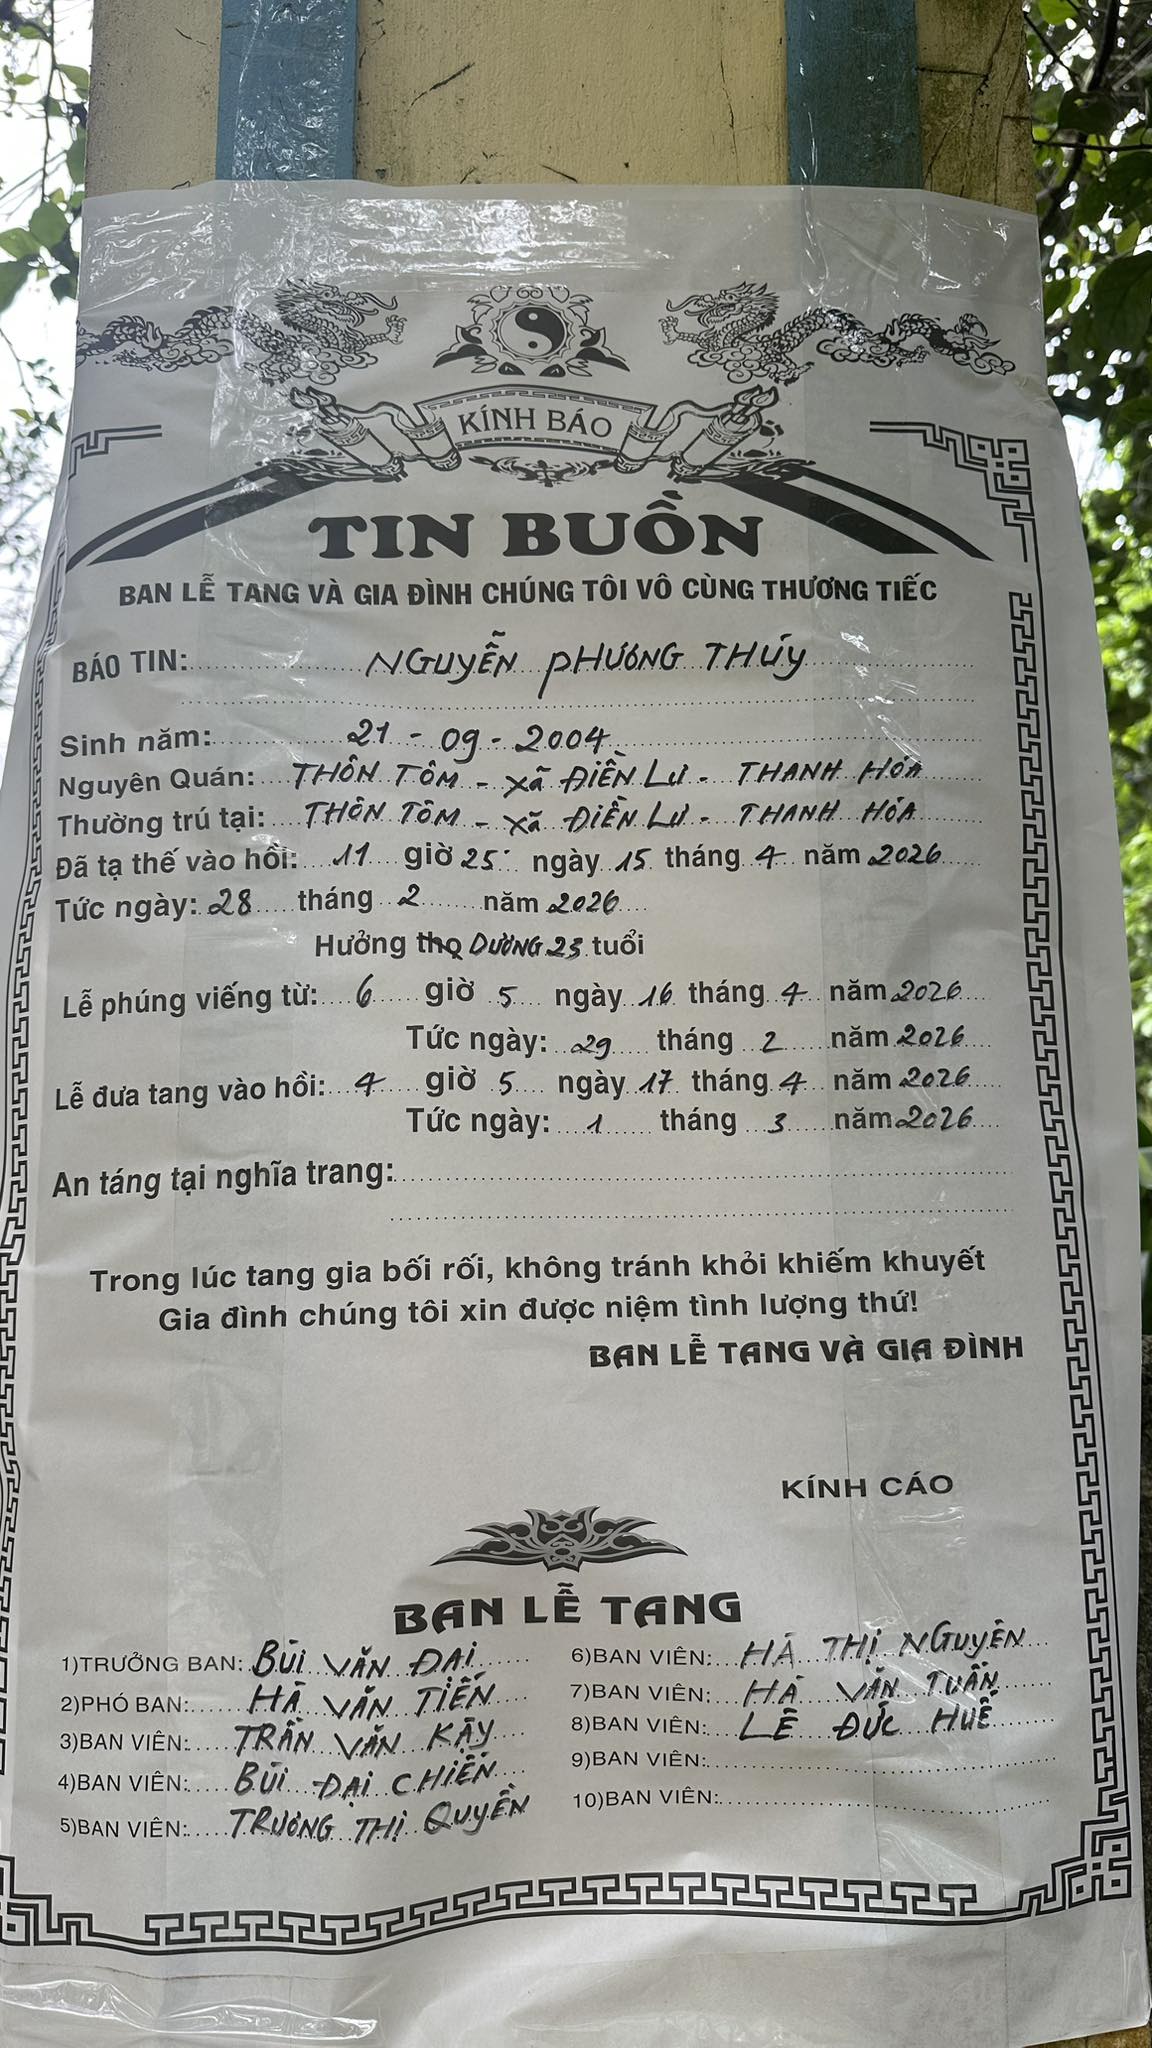 KÍNH BÁO
TIN BUỒN
BAN LỄ TANG VÀ GIA ĐÌNH CHÚNG TÔI VÔ CÙNG THƯƠNG TIẾC
BÁO TIN: NGUYỄN PHƯƠNG THÚY
Sinh năm: 21 - 09 - 2004
Nguyên Quán: THÔN TÔM - XÃ ĐIỀN LƯ - THANH HÓA
Thường trú tại: THÔN TÔM - XÃ ĐIỀN LƯ - THANH HÓA
Đã tạ thế vào hồi: 11 giờ 25' ngày 15 tháng 4 năm 2026
Tức ngày: 28 tháng 2 năm 2026
Hưởng thọ DƯƠNG 23 tuổi
Lễ phúng viếng từ: 6 giờ 5 ngày 16 tháng 4 năm 2026
Tức ngày: 29 tháng 2 năm 2026
Lễ đưa tang vào hồi: 4 giờ 5 ngày 17 tháng 4 năm 2026
Tức ngày: 1 tháng 3 năm 2026
An táng tại nghĩa trang:
Trong lúc tang gia bối rối, không tránh khỏi khiếm khuyết
Gia đình chúng tôi xin được niệm tình lượng thứ!
BAN LỄ TANG VÀ GIA ĐÌNH
KÍNH CÁO
BAN LỄ TANG
1)TRƯỞNG BAN: BÙI VĂN ĐẠI
2)PHÓ BAN: HÀ VĂN TIẾN
3)BAN VIÊN: TRẦN VĂN KẬY
4)BAN VIÊN: BÙI ĐẠI CHIẾN
5)BAN VIÊN: TRƯƠNG THỊ QUYỀN
6)BAN VIÊN: HÀ THỊ NGUYÊN
7)BAN VIÊN: HÀ VĂN TUẤN
8)BAN VIÊN: LÊ ĐỨC HUẾ
9)BAN VIÊN:
10)BAN VIÊN: